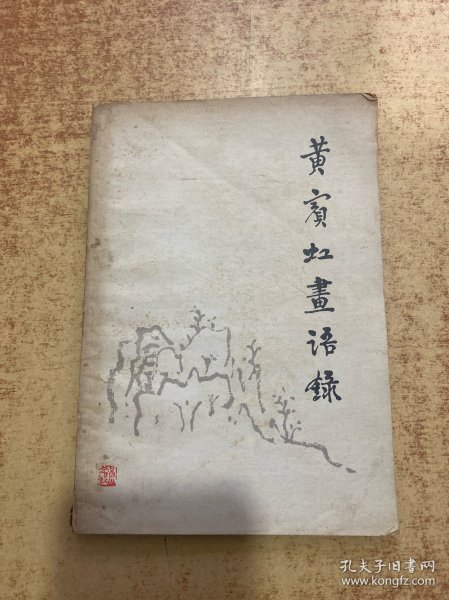 黄賓虹畫語録
孔夫子旧书网
www.kongfz.com